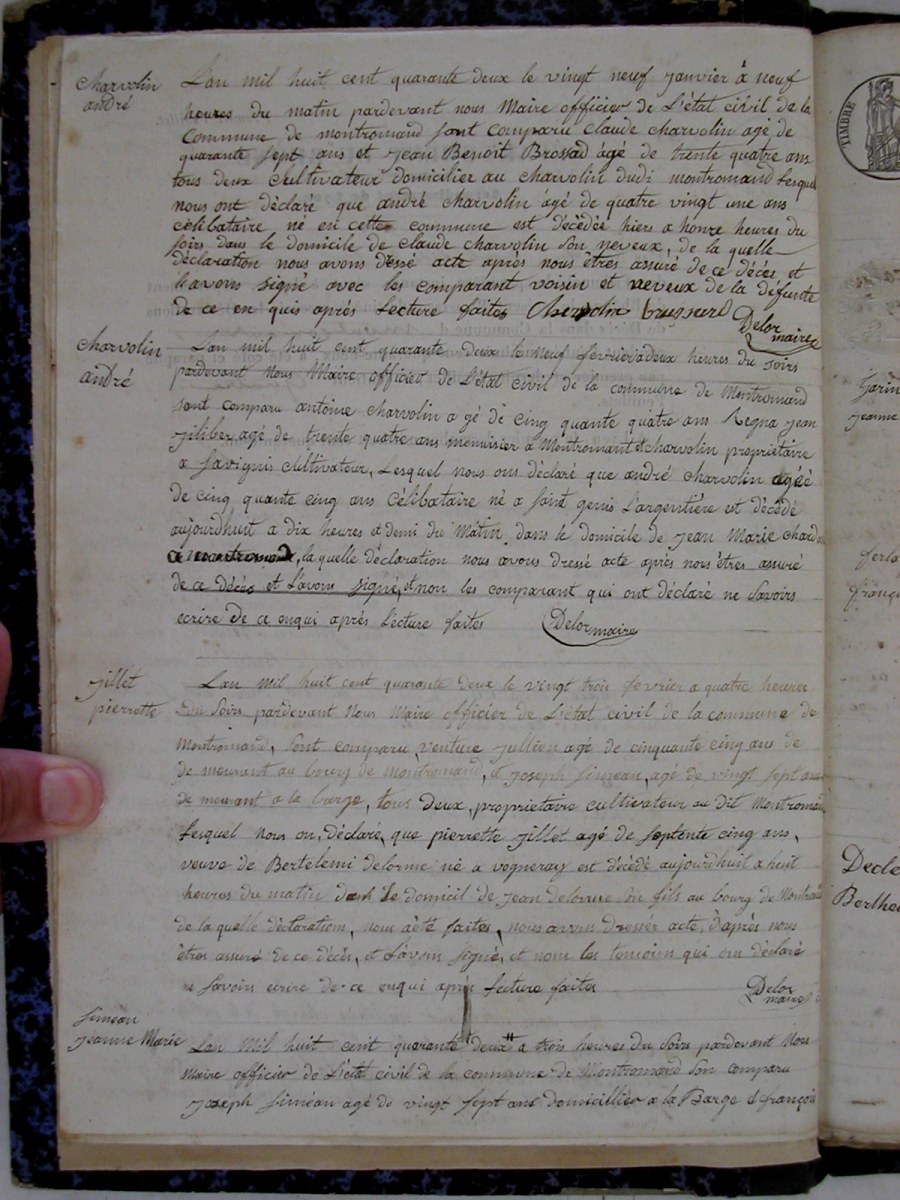 Charvolin
andré
L'an mil huit cent quarante deux le vingt neuf janvier à neuf
heures du matin pardevant nous Maire officier de L'état civil de la
Commune de montromand sont comparu claude charvolin agé de
quarante sept ans et jean Benoit Brossad âgé de trente quatre ans
tous deux cultivateur domicilier au charvolin dudi montromand Lesquel
nous ont déclaré que andré charvolin âgé de quatre vingt une ans
célibataire né en cette commune est décédée hiers a honze heures du
soirs dans le domicile de claude charvolin son neveux, de la quelle
déclaration nous avons dressé acte après nous êtres assuré de ce décés et
l'avons signé avec les comparant voisin et neveux de la défunte
de ce en quis après Lecture faites
Delor
maire
Charvolin
andré
L'an mil huit cent quarante deux le neuf février à deux heures du soirs
pardevant Nous Maire officier de L'état civil de la commune de Montromand
sont comparu antoine charvolin a gé de cinq quante quatre ans Regna jean
agé de trente quatre ans menuisier a Montromant et charvolin propriétaire
a Savignis cultivateur, Lesquel nous ons déclaré que andré charvolin agéé
de cinq quante cinq ans Célibataire né a saint genis L'argentière est décédé
aujourdhuit a dix heures et demi du Matin, dans le domicile de jean Marie
a montromand, la quelle déclaration nous avons dressé acte après nous êtres assuré
de ce décés et l'avons signé, et non les comparant qui ont déclaré ne savoirs
ecrire de ce enqui après Lecture faites
Delor maire
jillet
pierrette
L'an mil huit cent quarante deux le vingt trois fevrier a quatre heures
du soirs pardevant Nous Maire officier de L'état civil de la commune de
Montromand, sont comparu venture jullien agé de cinquante cinq ans de
de meurant au bourg de montromand, et joseph Simean, agé de vingt sept ans
de meurant a la barge, tous deux, propriétaire cultivateur au dit Montromand
Lesquel nous on, déclaré, que pierrette jillet agé de septente cinq ans,
veuve de Bertelemi delorme né a vogneray est décédé aujourdhuit a huit
heures du matin dans le domicil de jean delorme son fils au bourg de Montromand
de la quelle déctaration, nous àété faites, nous avons dressér acte, d'après nous
êtres assuré de ce décès, et l'avons signé, et nom les temoins qui om déclaré
ne savoirs ecrire de ce enqui après Lecture faites
Delor
maire
Simean
jeanne Marie
Lan Mil huit cent quarante deux a trois heures du soirs pardevant Nous
Maire officier de L'état civil de la commune de Montromand son comparu
joseph siméan agé de vingt sept ans domicillier a la Barge et françois
TIMBRE
jeanne
Decle
Berthe